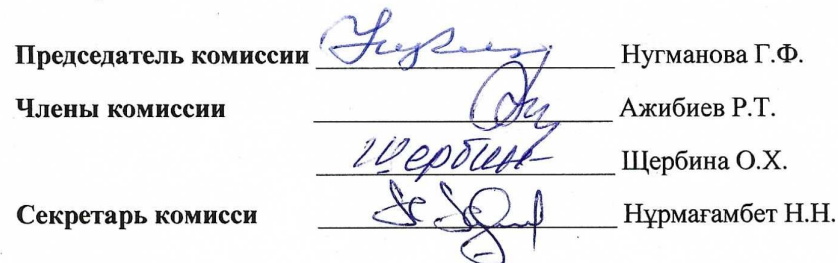 Председатель комиссии Нугманова Г.Ф.
Члены комиссии Ажибиев Р.Т.
Щербин Щербина О.Х.
Секретарь комисси Нұрмағамбет Н.Н.